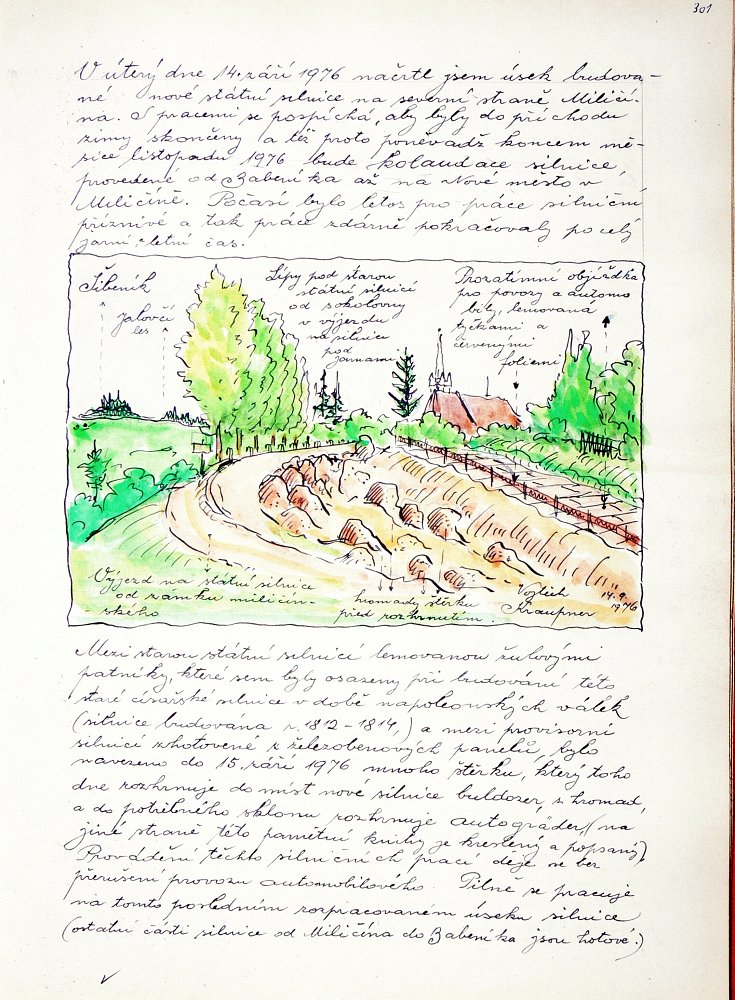 301
V úterý dne 14. září 1976 načrtl jsem úsek budova-
né nové státní silnice na severní straně Miličí-
na. S pracemi se pospíchá, aby byly do příchodu
zimy skončeny a též proto poněvadž koncem mě-
síce listopadu 1976 bude kolaudace silnice,
provedené od Babeníka až na Nové město v
Miličíně. Počasí bylo letos pro práce silniční
příznivé a tak práce zdárně pokračovaly po celý
jarní i letní čas.
Šibeník
Jalovčí
les
Lípy pod starou
státní silnicí
od sokolovny
v výjezdu
na silnice
pod
jamami
Prozatímní objížďka
pro povozy a automo
bily, lemovaná
tyčkami a
červenými
foliemi
Výjezd na státní silnice
od zámku miličín-
ského
hromady štěrku
před rozhrnutím.
Vojtěch
Kraupner
14.9.
1976
Mezi starou státní silnicí lemovanou žulovými
patníky, které sem byly osazeny při budování této
staré císařské silnice v době napoleonských válek
(silnice budována r. 1812-1814,) a mezi provisorní
silnicí zhotovené z železobenových panelů, bylo
navezeno do 15. září 1976 mnoho štěrku, který toho
dne rozhrnuje do míst nové silnice buldozer, z hromad,
a do potřebného sklonu rozhrnuje autogräder, (na
jiné straně této pamětní knihy je kreslený a popsaný).
Provádění těchto silničních prací děje se bez
přerušení provozu automobilového. Pilně se pracuje
na tomto posledním rozpracovaném úseku silnice
(ostatní části silnice od Miličína do Babeníka jsou hotové.)